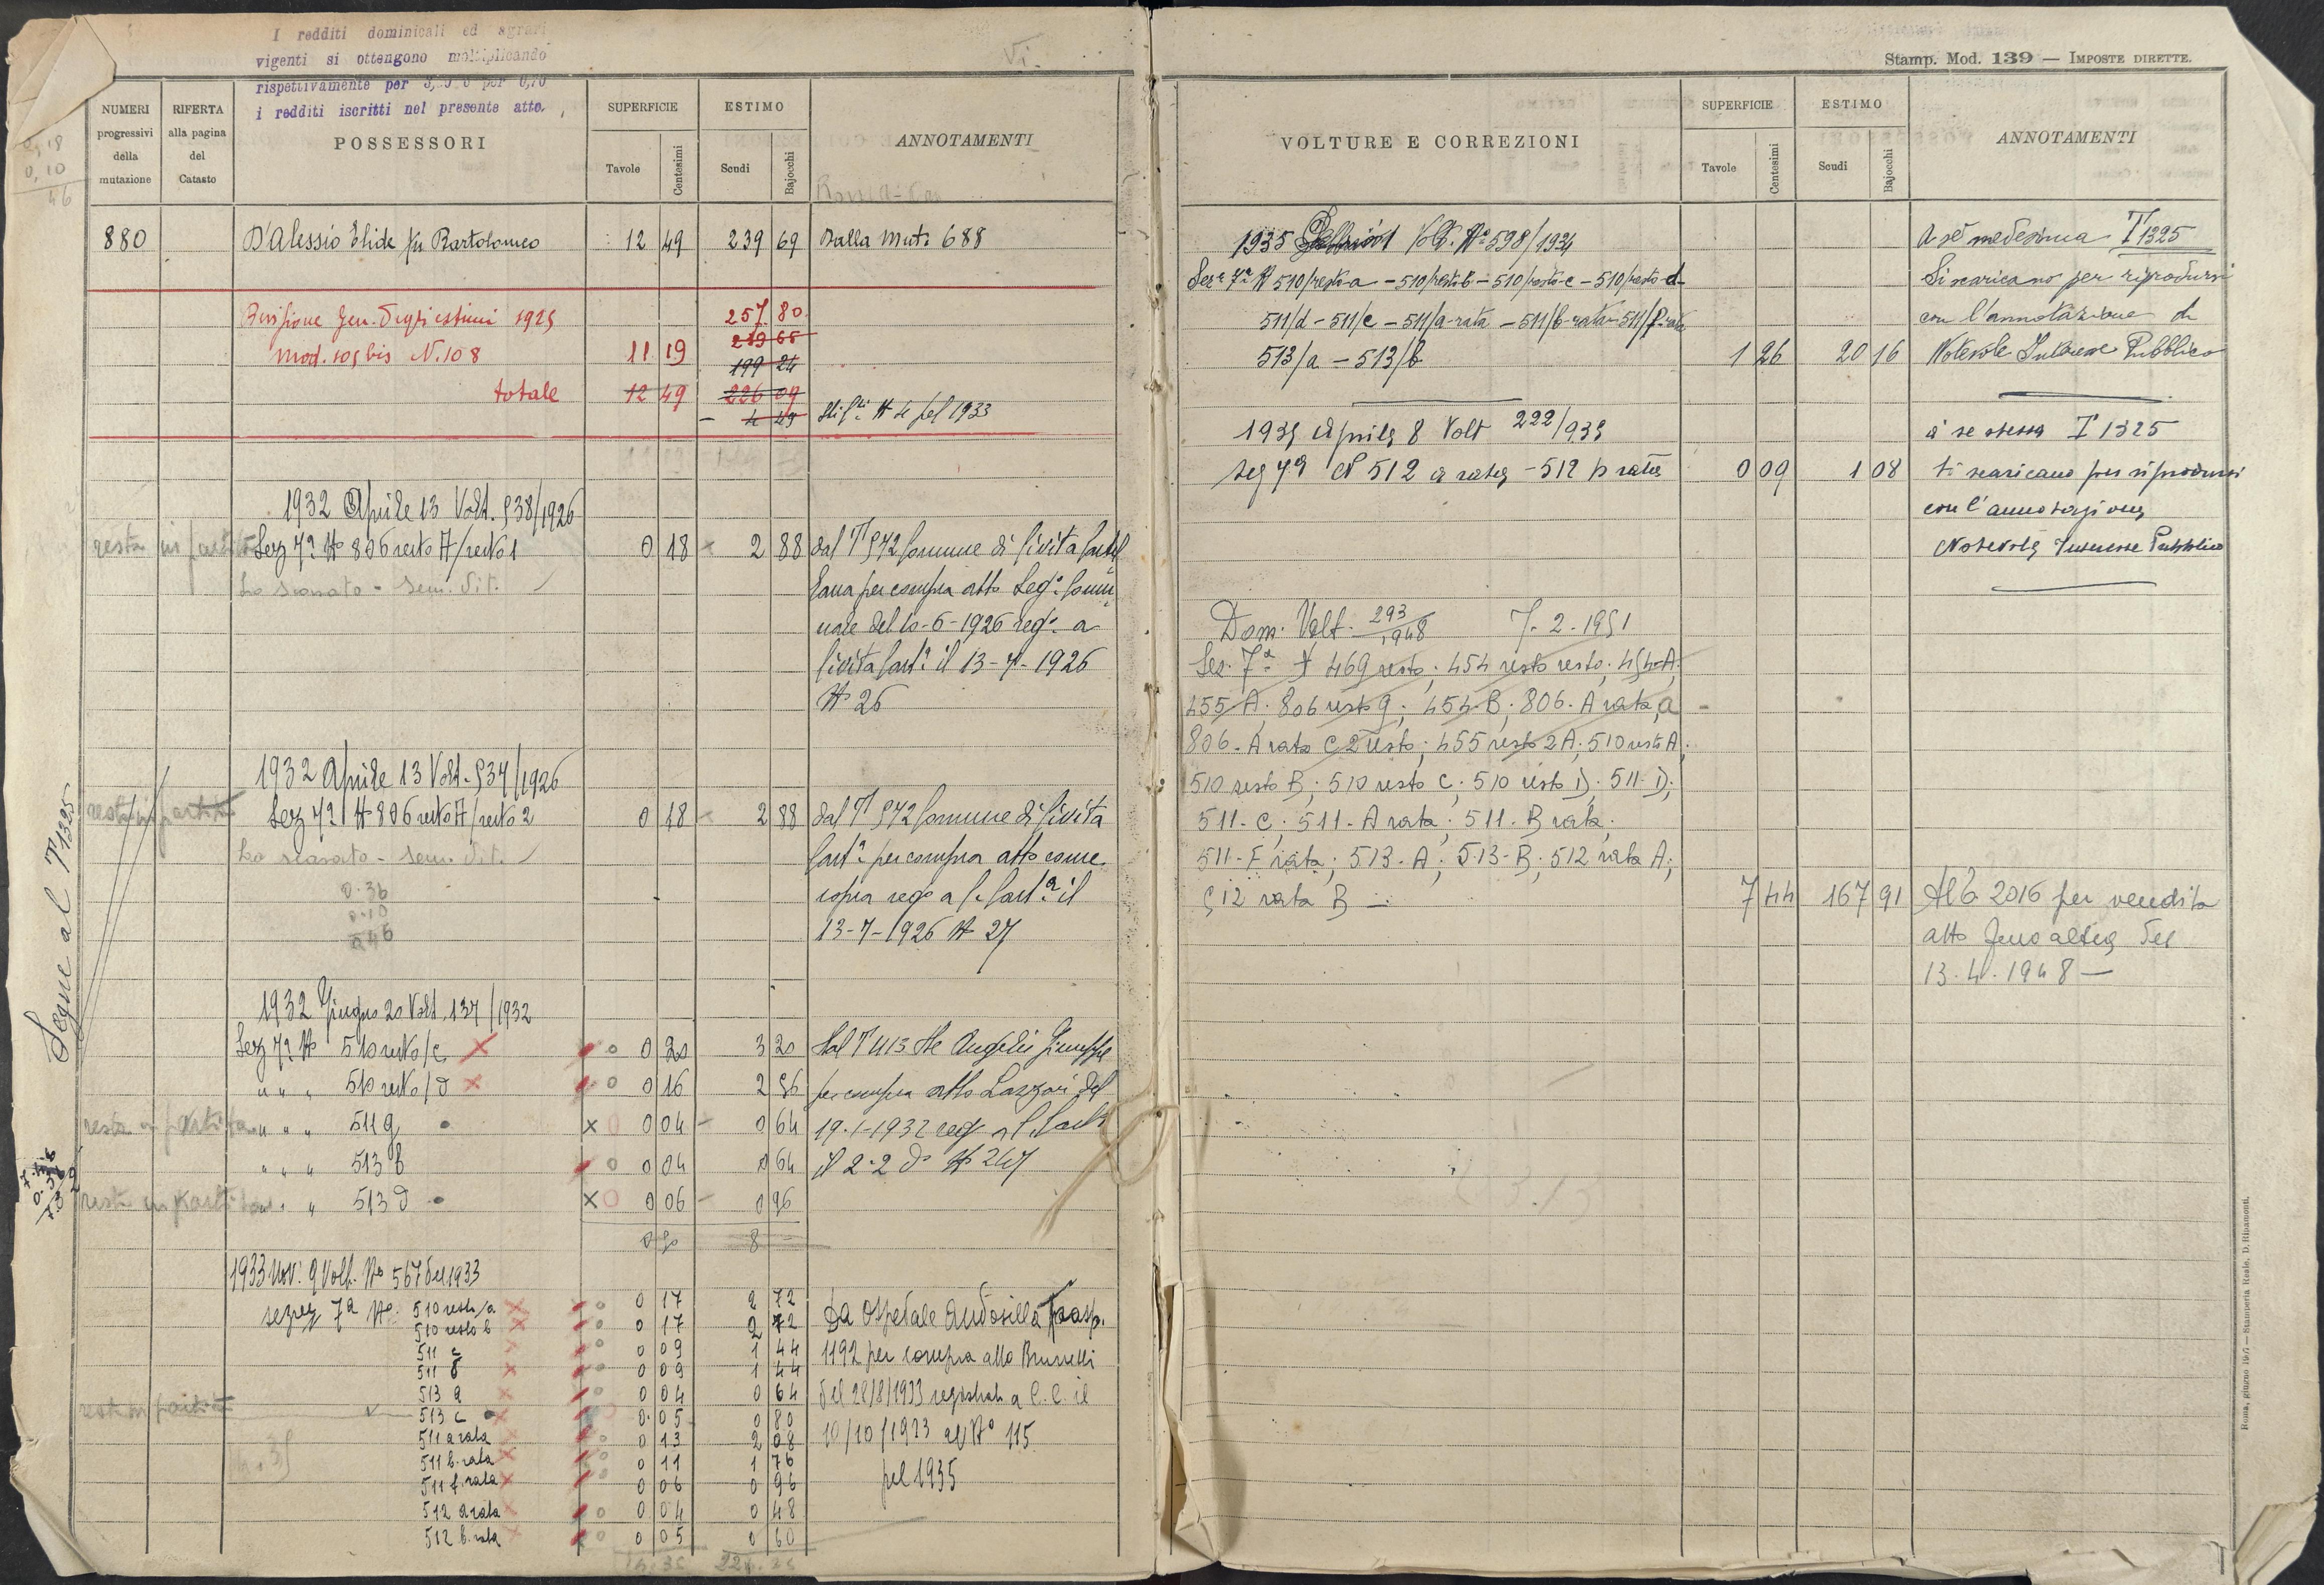 I redditi dominicali ed agrari
vigenti si ottengono moltiplicando
rispettivamente per
i redditi iscritti nel presente atto.
NUMERI progressivi della mutazione
RIFERTA alla pagina del Catasto
POSSESSORI
SUPERFICIE
Tavole
Centesimi
ESTIMO
Scudi
Bajocchi
ANNOTAMENTI
880 D'Alessio Elide fu Bartolomeo 12 49 239 69 Dalla Mut. 688
Revisione Gen. degli estimi 257 80
219 65
mod. N. 108 11 19
199 24
totale 12 49 226 09
4 49 pel 1933
1932 Aprile 13 Volt. 538/1926
resta in partita Sez 7ª N° 806 resto A/resto 1 0 18 2 88 dal T 572 Comune di Civita Castel
lana per compra atto Seg. Comu
nale del 10-6-1926 reg. a
Civita Cast. il 13-7-1926
N° 26
1932 Aprile 13 Volt. 537/1926
resta in partita Sez 7ª N° 806 resto A/resto 2 0 18 2 88 dal T 572 Comune di Civita
Cast. per compra atto come
sopra reg. a C. Cast. il
13-7-1926 N° 27
0.36
0.10
0.46
Segue al T 1325
1932 Giugno 20 Volt. 137/1932
Sez 7ª N° 510 resto/c 0 20 3 20 Dal T 413 De Angelis Giuseppe
" " " 510 resto/d 0 16 2 56 per compra atto Lazzari del
resta in partita " " " 511 g 0 04 0 64 19-1-1932 reg
" " " 513 b 0 04 0 64 il 2-2 d° N° 247
resta in partita " " " 513 d 0 06 0 96
0 50 8
1933 Nov. 9 Volt. N° 567 del 1933
sez 7ª N° 510 resto/a 0 17 2 72 Da Ospedale Andosilla
510 resto b 0 17 2 72
511 c 0 09 1 44 1192 per compra atto Brunelli
511 d 0 09 1 44
513 a 0 04 0 64 del 28/8/1933 registrato a C. C. il
resta in partita 513 c 0 05 0 80
511 a rata 0 13 2 08 10/10/1933 al N° 115
511 b. rata 0 11 1 76
511 f. rata 0 06 0 96 pel 1935
512 a rata 0 04 0 48
512 b. rata 0 05 0 60
Stamp. Mod. 139 — IMPOSTE DIRETTE.
VOLTURE E CORREZIONI
SUPERFICIE
Tavole
Centesimi
ESTIMO
Scudi
Bajocchi
ANNOTAMENTI
1935 Volt. N° 598/1934 A sé medesima T 1325
Sez. 7ª N 510/resto-a - 510/resto-b - 510/resto-c - 510/resto-d Si scaricano per riprodursi
511/d - 511/c - 511/a-rata - 511/b-rata - 511/f-rata con l'annotazione di
513/a - 513/b 1 26 20 16 Notevole Interesse Pubblico
1935 Aprile 8 Volt 222/935 a se stessa T 1325
sez 7ª N 512 a rata - 512 b rata 0 09 1 08 si scaricano per riprodursi
con l'annotazione
Notevole Interesse Pubblico
Dom. Volt. 293/1948 7-2-1951
Sez. 7ª N 469 resto; 454 resto resto; 454-A;
455-A; 806 resto g; 454-B; 806-A rata a
806-A rata C 2 resto; 455 resto 2A; 510 resto A;
510 resto B; 510 resto C; 510 resto D; 511-D;
511-C; 511-A rata; 511-B rata;
511-F rata; 513-A; 513-B; 512 rata A;
512 rata B 7 44 167 91 Al 2016 per vendita
atto del
13-4-1948
Roma, giugno — Stamperia Reale, D. Ripamonti.